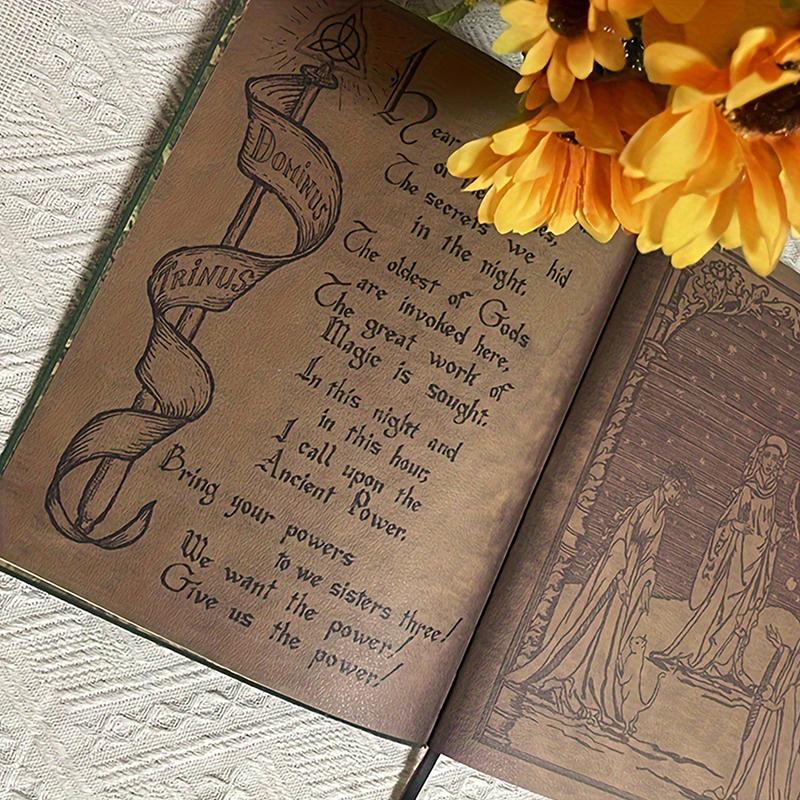 Dominus
Trinus
hear
The secrets we hid
in the night,
The oldest of Gods
are invoked here,
The great work of
Magic is sought.
In this night and
in this hour,
I call upon the
Ancient Power.
Bring your powers
to we sisters three!
We want the power!
Give us the power!